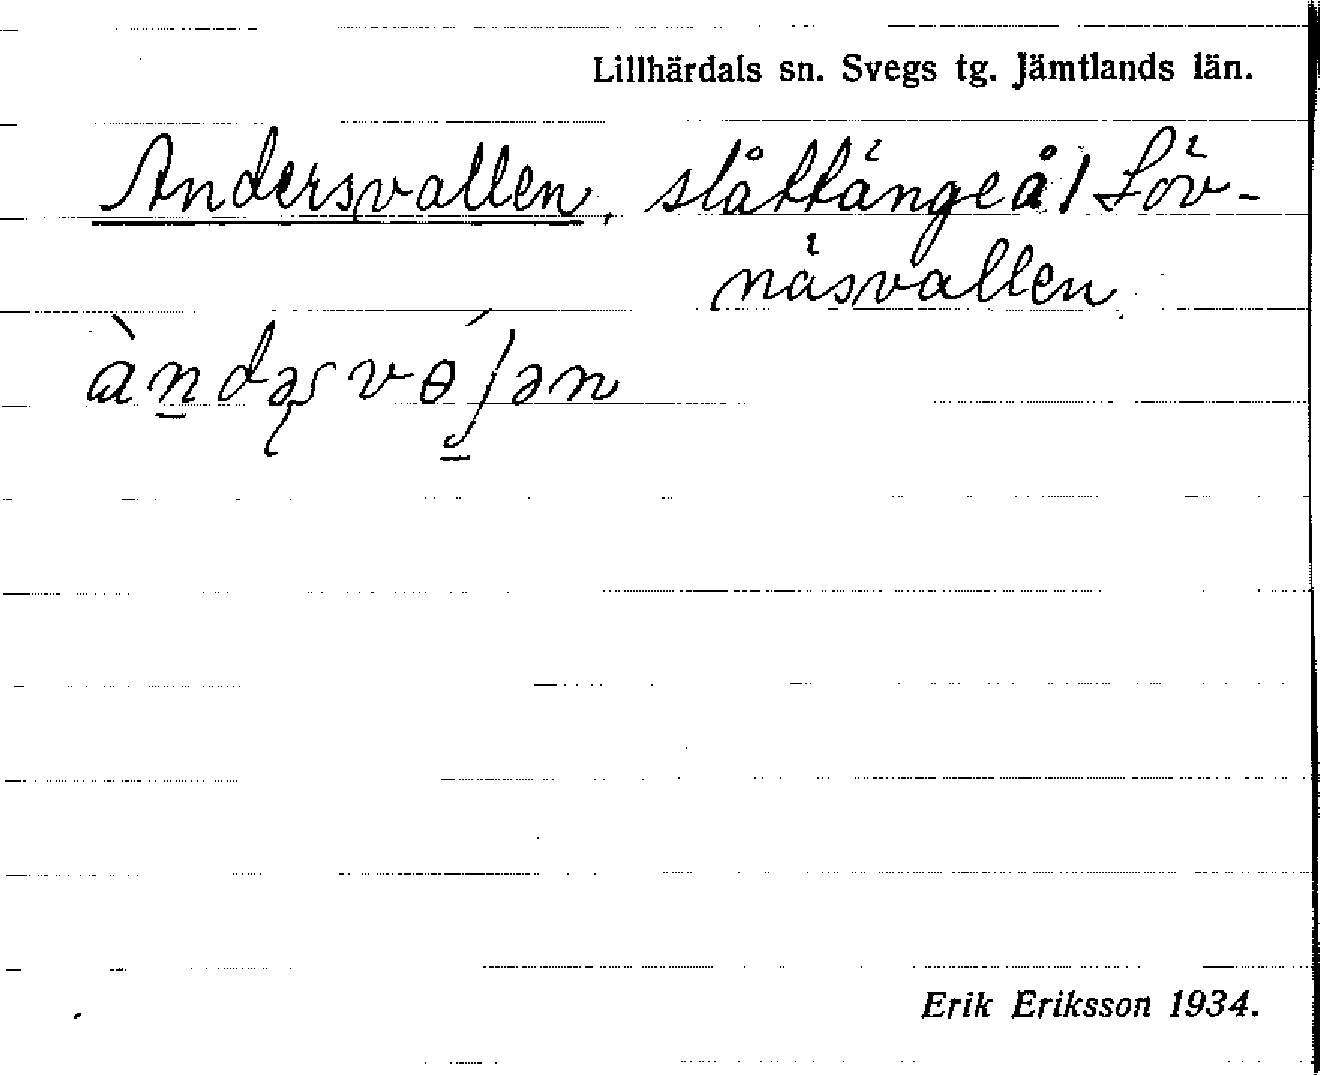 Lillhärdals sn. Svegs tg. Jämtlands län.
Andersvallen, slåttänge å / Löv-
näsvallen.
Erik Eriksson 1934.